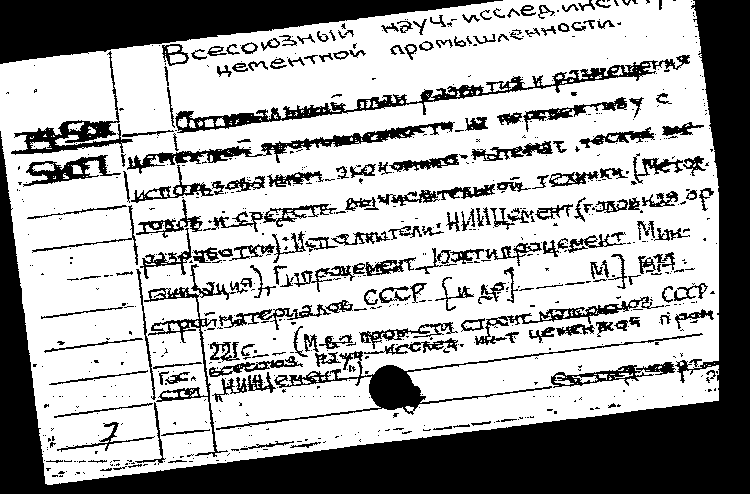 Всесоюзный науч.-исслед. институ
цементной промышленности.
Оптимальный план развития и размещения
цементной промышленности на перспективу с
использованием экономико-математ. ческих ме-
тодов и средств вычислительной техники. (Метод.
разработки). Исполнители: НИИЦемент (головная ор
ганизация), Гипроцемент, Южгипроцемент Мин-
стройматериалов СССР [и др.] М.],
221с. (М-во пром-сти строит. материалов СССР.
Всесоюз. науч.-исслед. ин-т цементной пром-
сти "НИИЦемент").
Гос.
См. след. карт.
7